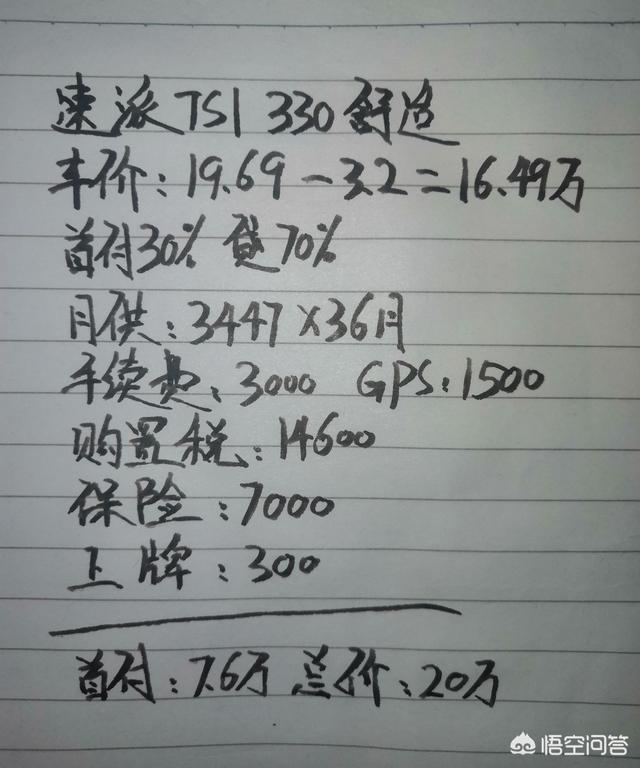 速派TSI 330舒适
车价：19.69－3.2＝16.49万
首付30% 贷70%
月供：3447×36月
手续费：3000 GPS：1500
购置税：14600
保险：7000
上牌：300
首付：7.6万 总价：20万
悟空问答